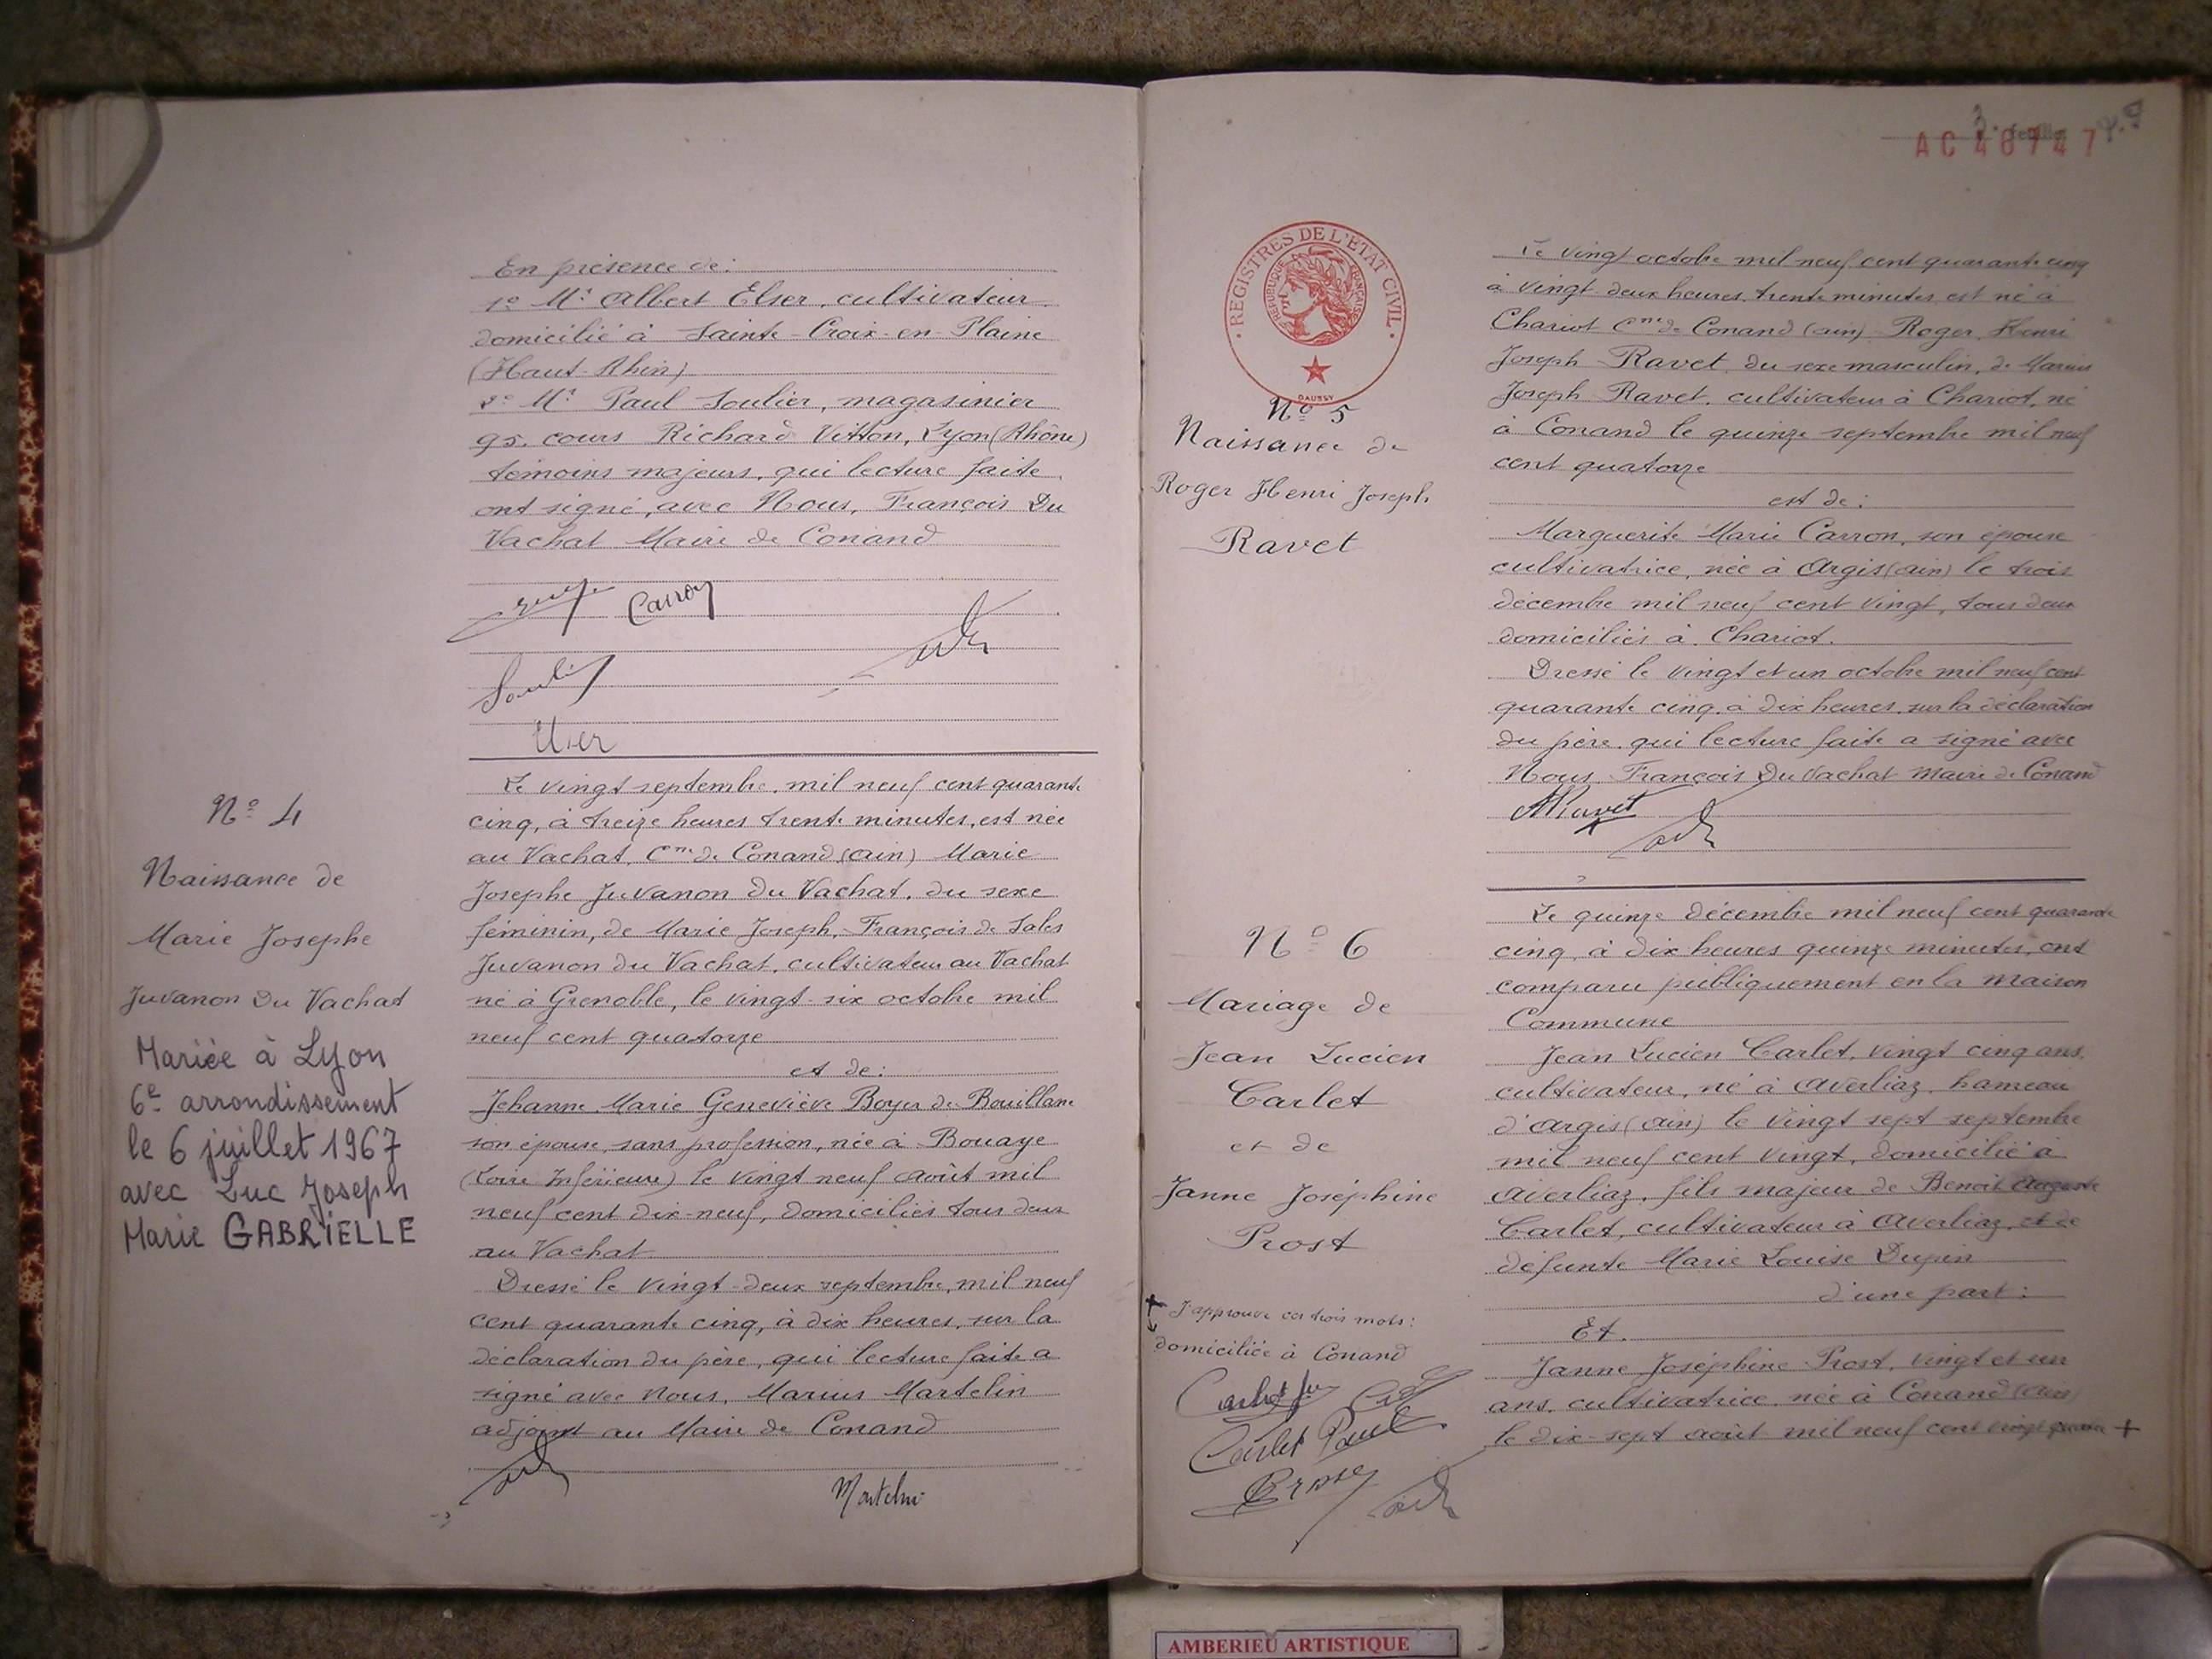 En présence de :
1º Mr Albert Elser, cultivateur
domicilié à Sainte-Croix-en-Plaine
(Haut-Rhin)
2º Mr Paul Soulier, magasinier
95, cours Richard Vitton, Lyon (Rhône)
témoins majeurs, qui lecture faite
ont signé, avec Nous, François Du
Vachat Maire de Conand
Carron
Soulier
Elser
Nº 4
Naissance de
Marie Josephe
Juvanon Du Vachat
Mariée à Lyon
6e arrondissement
le 6 juillet 1967
avec Luc Joseph
Marie GABRIELLE
Le vingt septembre mil neuf cent quarante
cinq, à treize heures trente minutes, est née
au Vachat, Cne de Conand (Ain) Marie
Josephe Juvanon Du Vachat, du sexe
féminin, de Marie Joseph, François de Sales
Juvanon du Vachat, cultivateur au Vachat
né à Grenoble, le vingt-six octobre mil
neuf cent quatorze
et de :
Jehanne Marie Geneviève Boyer de Bouillane
son épouse, sans profession, née à Bouaye
(Loire Inférieure) le vingt neuf août mil
neuf cent dix-neuf, domiciliés tous deux
au Vachat
Dressé le vingt-deux septembre, mil neuf
cent quarante cinq, à dix heures, sur la
déclaration du père, qui lecture faite a
signé avec Nous, Marius Martelin
adjoint au Maire de Conand
Martelin
2e feuillet
AC 48747
REGISTRES DE L'ETAT CIVIL
REPUBLIQUE FRANÇAISE
DAUSSY
Nº 5
Naissance de
Roger Henri Joseph
Ravet
Le vingt octobre mil neuf cent quarante cinq
à vingt-deux heures trente minutes est né à
Chariot Cne de Conand (Ain) Roger Henri
Joseph Ravet, du sexe masculin, de Marius
Joseph Ravet, cultivateur à Chariot, né
à Conand le quinze septembre mil neuf
cent quatorze
est de :
Marguerite Marie Carron, son épouse
cultivatrice, née à Argis (Ain) le trois
décembre mil neuf cent vingt, tous deux
domiciliés à Chariot.
Dressé le vingt et un octobre mil neuf cent
quarante cinq, à dix heures, sur la déclaration
du père, qui lecture faite a signé avec
Nous François Du Vachat Maire de Conand
MRavet
Nº 6
Mariage de
Jean Lucien
Carlet
et de
Janne Joséphine
Prost
J'approuve ces trois mots :
domiciliée à Conand
Carlet
Carlet Paul
Prost
Le quinze décembre mil neuf cent quarante
cinq, à dix heures quinze minutes, ont
comparu publiquement en la maison
Commune
Jean Lucien Carlet, vingt cinq ans,
cultivateur, né à Averliaz, hameau
d'Argis (Ain) le vingt sept septembre
mil neuf cent vingt, domicilié à
Averliaz, fils majeur de Benoit Auguste
Carlet, cultivateur à Averliaz, et de
défunte Marie Louise Dupin
d'une part :
Et.
Janne Joséphine Prost, vingt et un
ans, cultivatrice, née à Conand (Ain)
le dix-sept août mil neuf cent vingt quatre +
AMBERIEU ARTISTIQUE